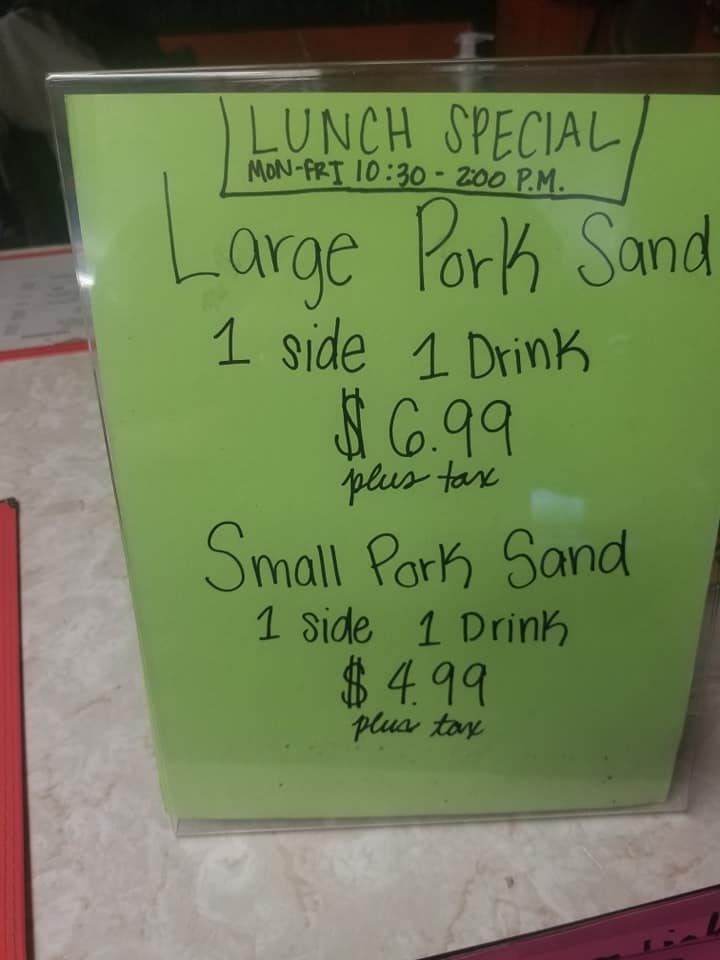 LUNCH SPECIAL
MON-FRI 10:30 - 2:00 P.M.
Large Pork Sand
1 side 1 Drink
$6.99
plus tax
Small Pork Sand
1 side 1 Drink
$4.99
plus tax